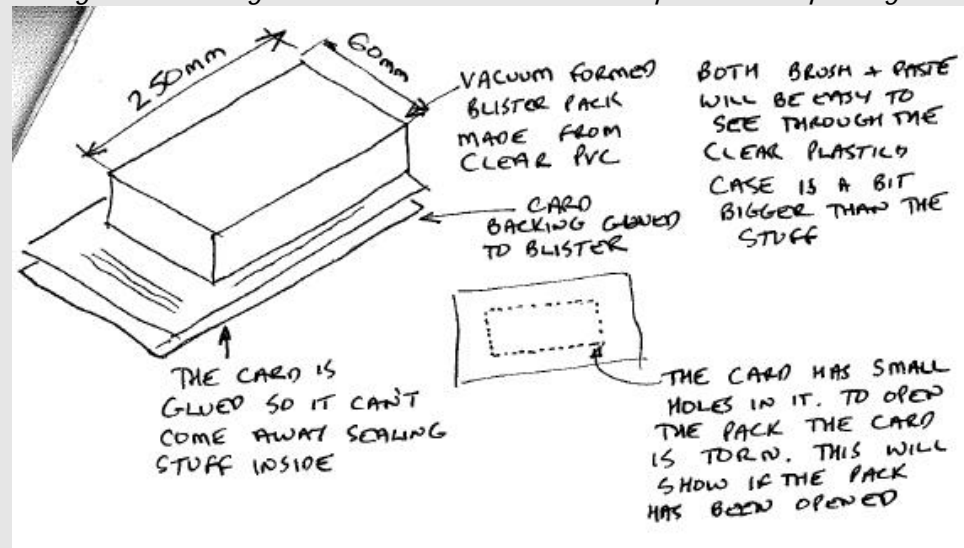 250mm
60mm
VACUUM FORMED
BLISTER PACK
MADE FROM
CLEAR PVC
CARD
BACKING GLUED
TO BLISTER
BOTH BRUSH + PASTE
WILL BE EASY TO
SEE THROUGH THE
CLEAR PLASTIC
CASE IS A BIT
BIGGER THAN THE
STUFF
THE CARD IS
GLUED SO IT CAN'T
COME AWAY SEALING
STUFF INSIDE
THE CARD HAS SMALL
HOLES IN IT. TO OPEN
THE PACK THE CARD
IS TORN. THIS WILL
SHOW IF THE PACK
HAS BEEN OPENED